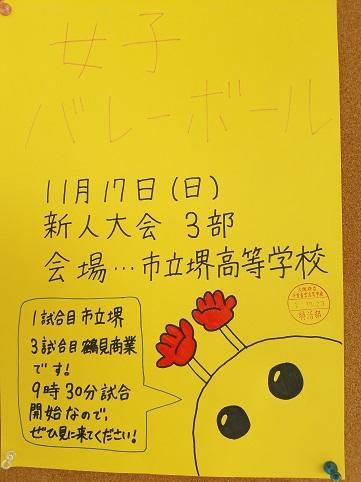 女子
バレーボール
11月17日(日)
新人大会 3部
会場…市立堺高等学校
1試合目市立堺
3試合目鶴見商業
です!
9時30分試合
開始なので、
ぜひ見に来てください!